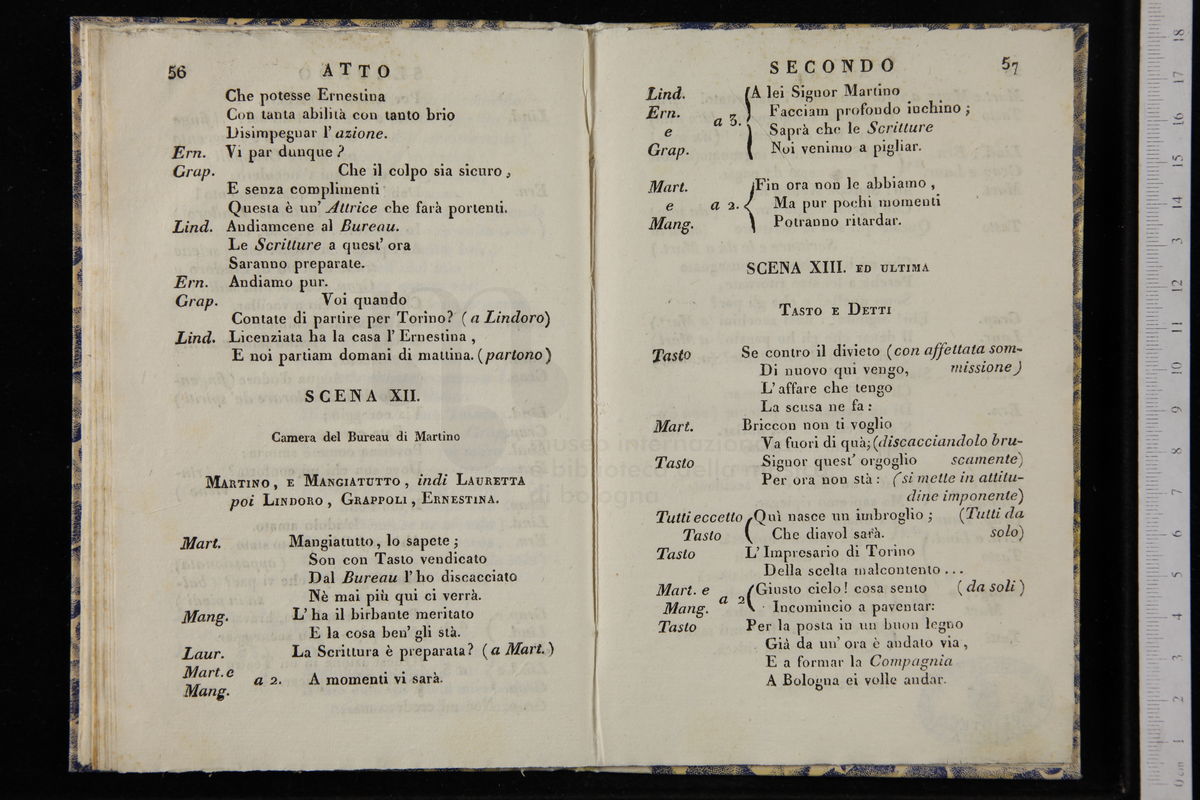 56 ATTO
Che potesse Ernestina
Con tanta abilità con tanto brio
Disimpegnar l' azione.
Ern. Vi par dunque?
Grap. Che il colpo sia sicuro,
E senza complimenti
Questa è un' Attrice che farà portenti.
Lind. Andiamcene al Bureau.
Le Scritture a quest' ora
Saranno preparate.
Ern. Andiamo pur.
Grap. Voi quando
Contate di partire per Torino? (a Lindoro)
Lind. Licenziata ha la casa l' Ernestina,
E noi partiam domani di mattina. (partono)
SCENA XII.
Camera del Bureau di Martino
MARTINO, E MANGIATUTTO, indi LAURETTA
poi LINDORO, GRAPPOLI, ERNESTINA.
Mart. Mangiatutto, lo sapete;
Son con Tasto vendicato
Dal Bureau l' ho discacciato
Nè mai più qui ci verrà.
Mang. L' ha il birbante meritato
E la cosa ben' gli stà.
Laur. La Scrittura è preparata? (a Mart.)
Mart. e
Mang. a 2. A momenti vi sarà.
SECONDO 57
Lind. A lei Signor Martino
Ern. a 3. Facciam profondo inchino;
e Saprà che le Scritture
Grap. Noi venimo a pigliar.
Mart. Fin ora non le abbiamo,
e a 2. Ma pur pochi momenti
Mang. Potranno ritardar.
SCENA XIII. ED ULTIMA
TASTO E DETTI
Tasto Se contro il divieto (con affettata som-
Di nuovo qui vengo, missione)
L' affare che tengo
La scusa ne fa:
Mart. Briccon non ti voglio
Va fuori di quà; (discacciandolo bru-
Tasto Signor quest' orgoglio scamente)
Per ora non stà: (si mette in attitu-
dine imponente)
Tutti eccetto Quì nasce un imbroglio; (Tutti da
Tasto Che diavol sarà. solo)
Tasto L' Impresario di Torino
Della scelta malcontento...
Mart. e Giusto cielo! cosa sento (da soli)
Mang. a 2 Incomincio a paventar:
Tasto Per la posta in un buon legno
Già da un' ora è andato via,
E a formar la Compagnia
A Bologna ei volle andar.
museo internazionale
e biblioteca della musica
di bologna
0 cm 1 2 3 4 5 6 7 8 9 10 11 12 13 14 15 16 17 18